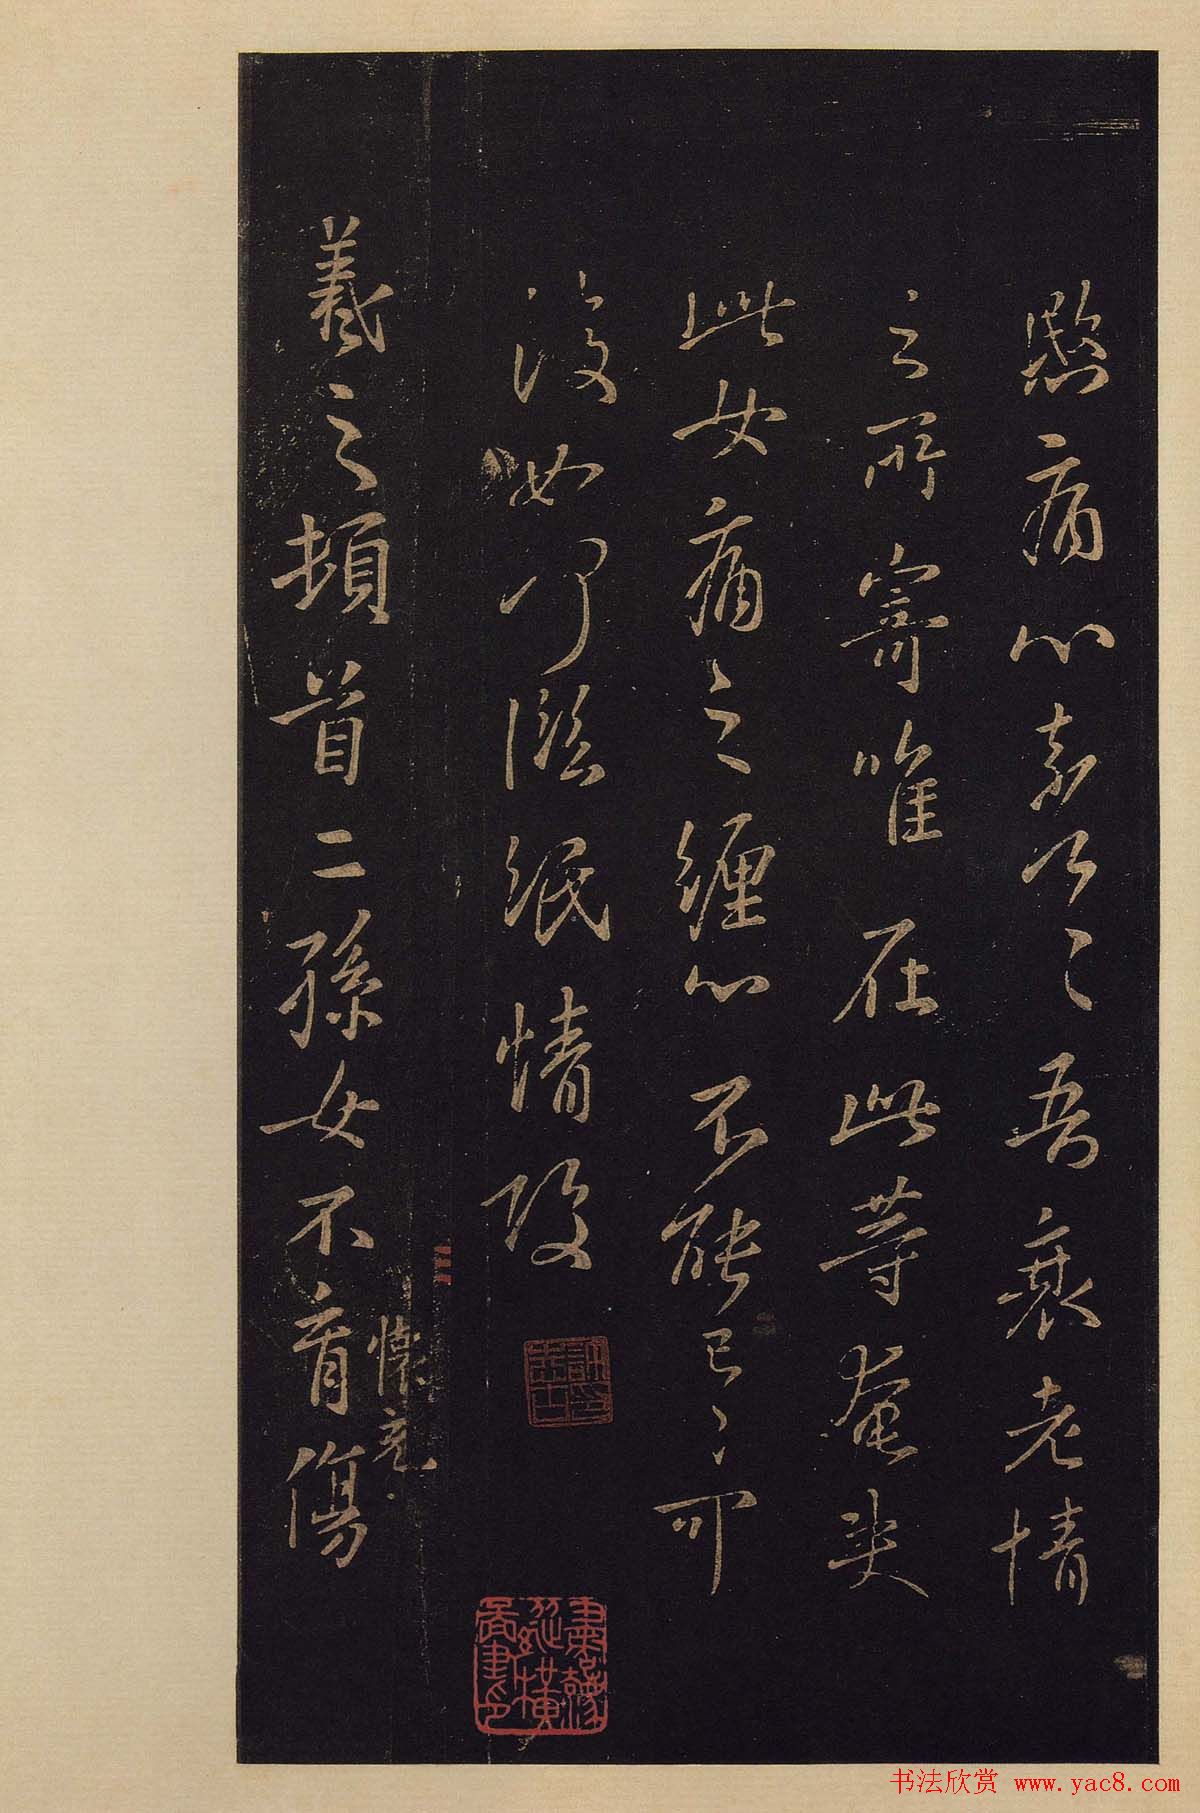 愍痛心奈何〻吾衰老情
之所寄唯在此等奄失
此女痛之纏心不能已〻可
復如何臨紙情酸
懷充
羲之頓首二孫女不育傷
书法欣赏 www.yac8.com